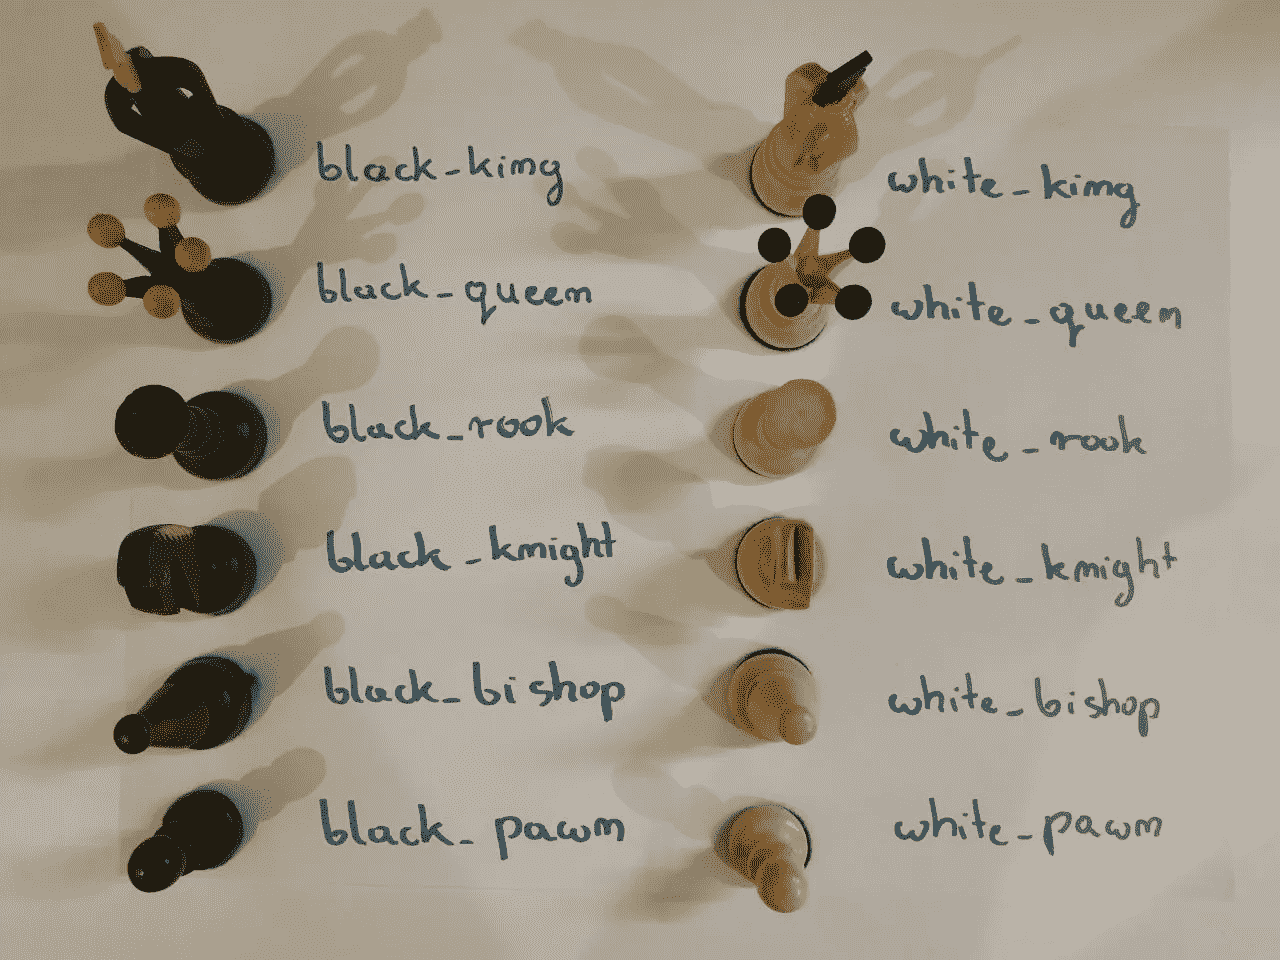 black_king
black_queen
black_rook
black_knight
black_bishop
black_pawn
white_king
white_queen
white_rook
white_knight
white_bishop
white_pawn